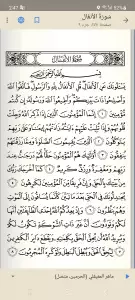 2:47
92%
سورة الأنفال
سُورَةُ الأَنفَالِ
بِسْمِ اللَّهِ الرَّحْمَٰنِ الرَّحِيمِ
يَسْـَٔلُونَكَ عَنِ ٱلْأَنفَالِ قُلِ ٱلْأَنفَالُ لِلَّهِ وَٱلرَّسُولِ فَٱتَّقُوا۟ ٱللَّهَ
وَأَصْلِحُوا۟ ذَاتَ بَيْنِكُمْ وَأَطِيعُوا۟ ٱللَّهَ وَرَسُولَهُۥٓ إِن كُنتُم
مُّؤْمِنِينَ ١ إِنَّمَا ٱلْمُؤْمِنُونَ ٱلَّذِينَ إِذَا ذُكِرَ ٱللَّهُ وَجِلَتْ
قُلُوبُهُمْ وَإِذَا تُلِيَتْ عَلَيْهِمْ ءَايَٰتُهُۥ زَادَتْهُمْ إِيمَٰنًا وَعَلَىٰ رَبِّهِمْ
يَتَوَكَّلُونَ ٢ ٱلَّذِينَ يُقِيمُونَ ٱلصَّلَوٰةَ وَمِمَّا رَزَقْنَٰهُمْ
يُنفِقُونَ ٣ أُو۟لَٰٓئِكَ هُمُ ٱلْمُؤْمِنُونَ حَقًّا لَّهُمْ دَرَجَٰتٌ عِندَ
رَبِّهِمْ وَمَغْفِرَةٌ وَرِزْقٌ كَرِيمٌ ٤ كَمَآ أَخْرَجَكَ رَبُّكَ مِنۢ
بَيْتِكَ بِٱلْحَقِّ وَإِنَّ فَرِيقًا مِّنَ ٱلْمُؤْمِنِينَ لَكَٰرِهُونَ ٥
يُجَٰدِلُونَكَ فِى ٱلْحَقِّ بَعْدَمَا تَبَيَّنَ كَأَنَّمَا يُسَاقُونَ إِلَى ٱلْمَوْتِ
وَهُمْ يَنظُرُونَ ٦ وَإِذْ يَعِدُكُمُ ٱللَّهُ إِحْدَى ٱلطَّآئِفَتَيْنِ أَنَّهَا
لَكُمْ وَتَوَدُّونَ أَنَّ غَيْرَ ذَاتِ ٱلشَّوْكَةِ تَكُونُ لَكُمْ
وَيُرِيدُ ٱللَّهُ أَن يُحِقَّ ٱلْحَقَّ بِكَلِمَٰتِهِۦ وَيَقْطَعَ دَابِرَ ٱلْكَٰفِرِينَ ٧
لِيُحِقَّ ٱلْحَقَّ وَيُبْطِلَ ٱلْبَٰطِلَ وَلَوْ كَرِهَ ٱلْمُجْرِمُونَ ٨
ماهر المعيقلي (الحرمين، متصل)